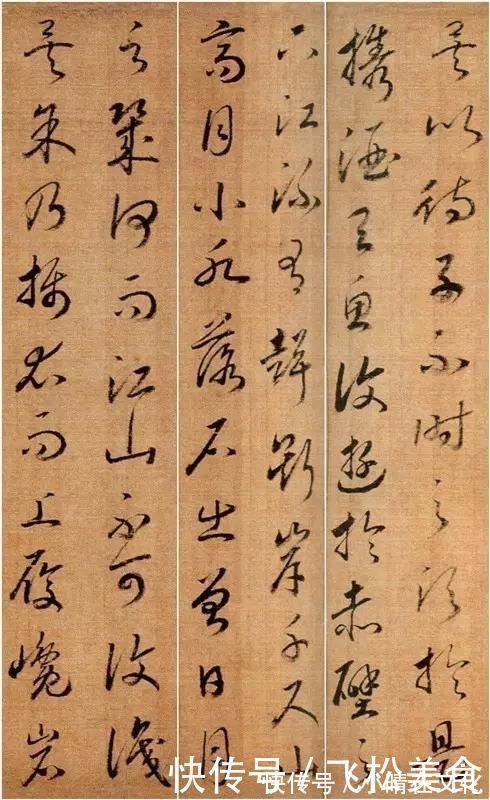 矣以待子不时之須於是
攜酒与魚復遊於赤壁之
下江流有聲斷岸千尺山
高月小水落石出曾日月
之幾何而江山不可復識
矣予乃攝衣而上履巉岩
快传号 / 飞松美食
快传号